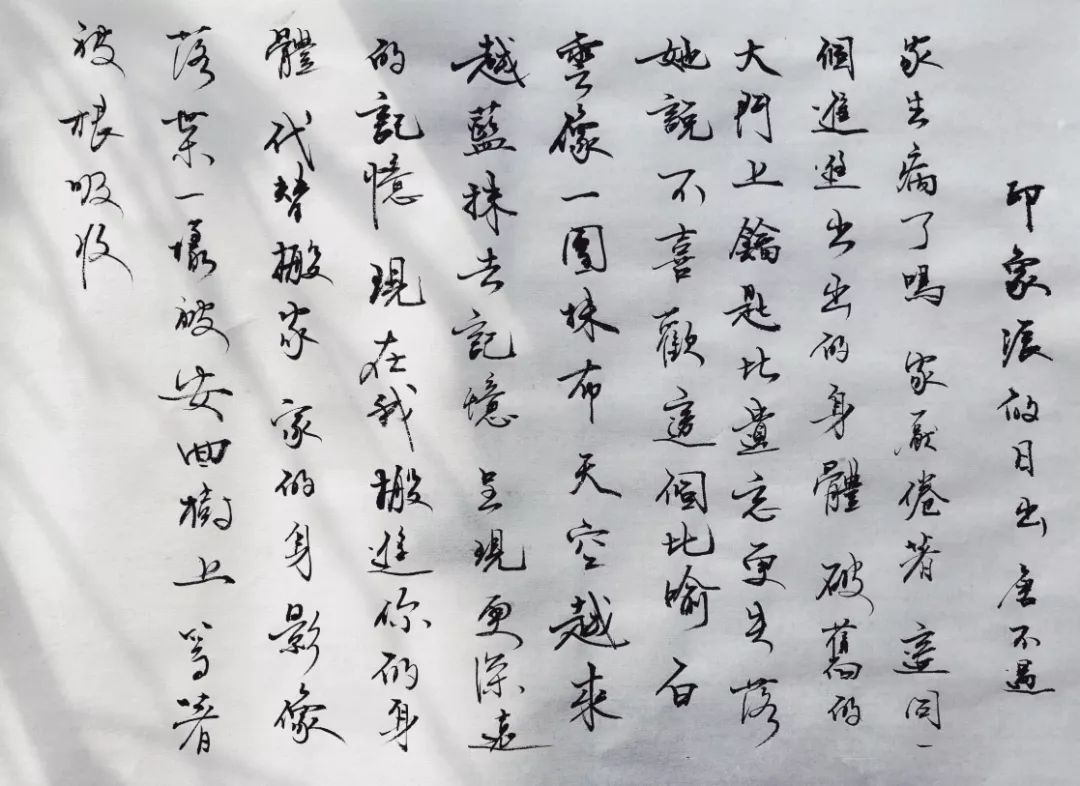 印象派的日出 唐不遇
家生病了嗎 家厭倦著 這同一
個進進出出的身體 破舊的
大門上鑰匙比遺忘更失落
她說不喜歡這個比喻 白
雲像一團抹布 天空越來
越藍抹去記憶 呈現更深遠
的記憶 現在我搬進你的身
體 代替搬家 家的身影像
落葉一樣被安回樹上 等著
被根吸收